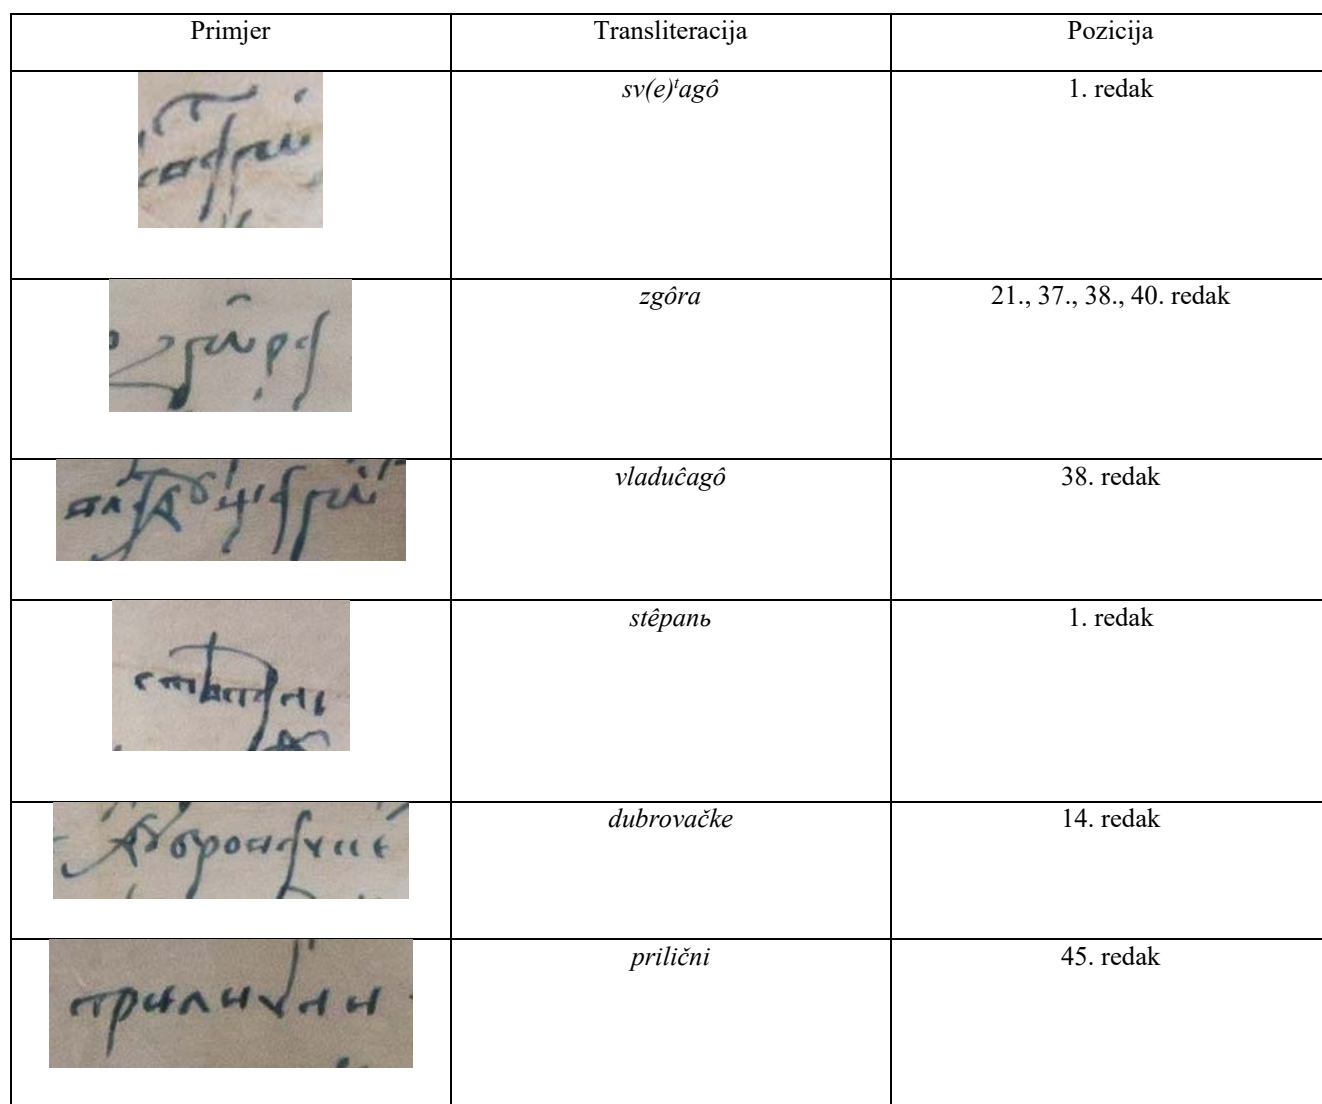 Primjer Transliteracija Pozicija
sv(e)ᵗagô 1. redak
zgôra 21., 37., 38., 40. redak
vladuĉagô 38. redak
stêpanь 1. redak
дȣбровачке dubrovačke 14. redak
прилични prilični 45. redak